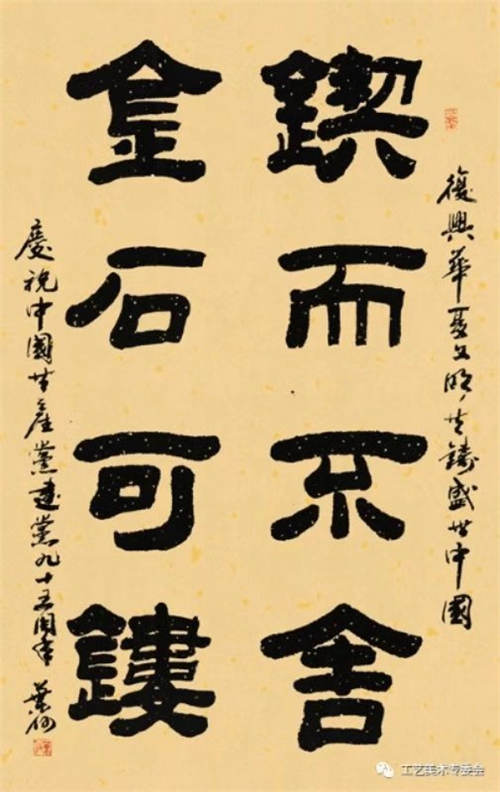 復興華夏文明共鑄盛世中國
鍥而不舍
金石可鏤
慶祝中國共產黨建黨九十五周年
工艺美术专委会